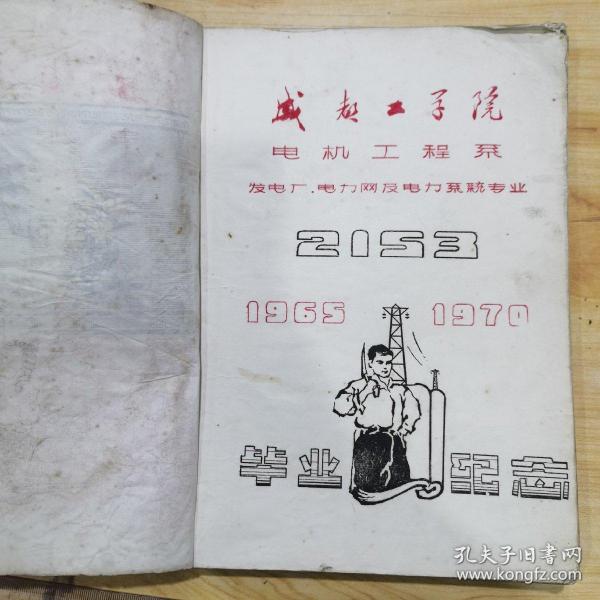 成都工学院
电机工程系
发电厂.电力网及电力系统专业
2153
1965 1970
毕业纪念
孔夫子旧书网
www.kongfz.com